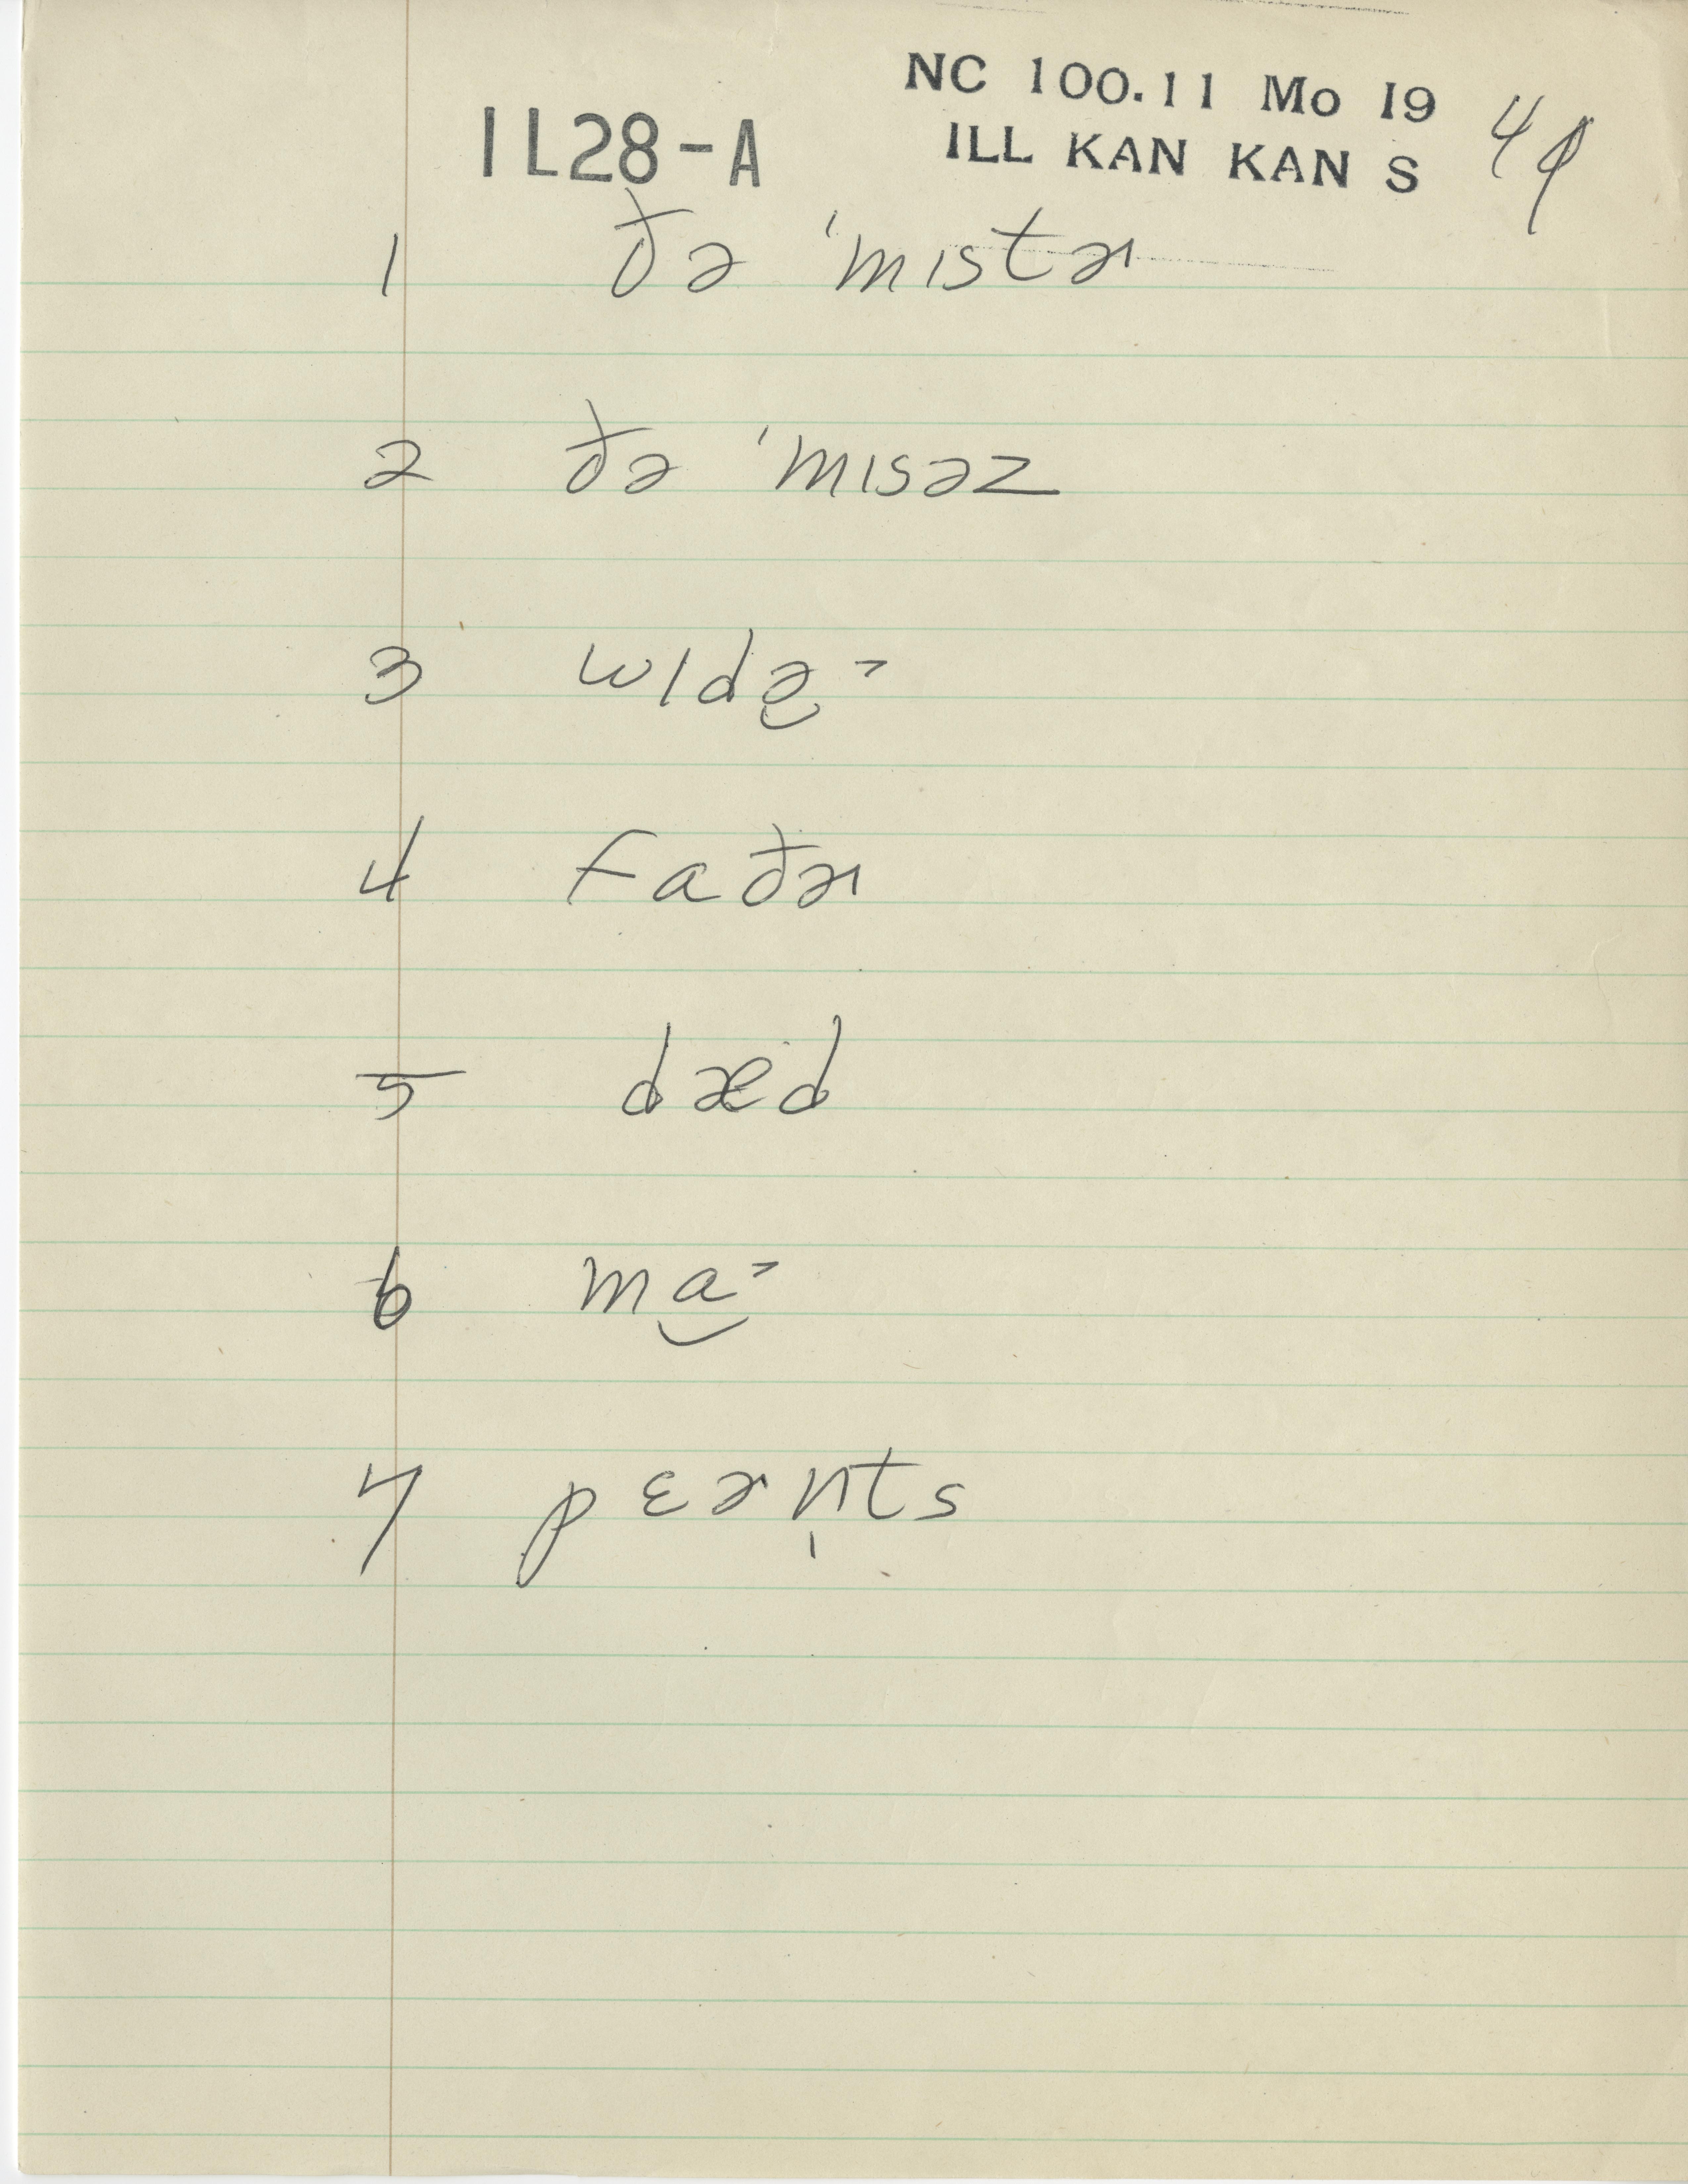 NC 100.11 Mo I9
1L28-A ILL KAN KAN S
1 ðə ˈmɪstɚ
2 ðə ˈmɪsəz
3 wɪdə̮˃
4 faðɚ
5 dæd
6 ma̮˃
7 pɛɚn̩ts